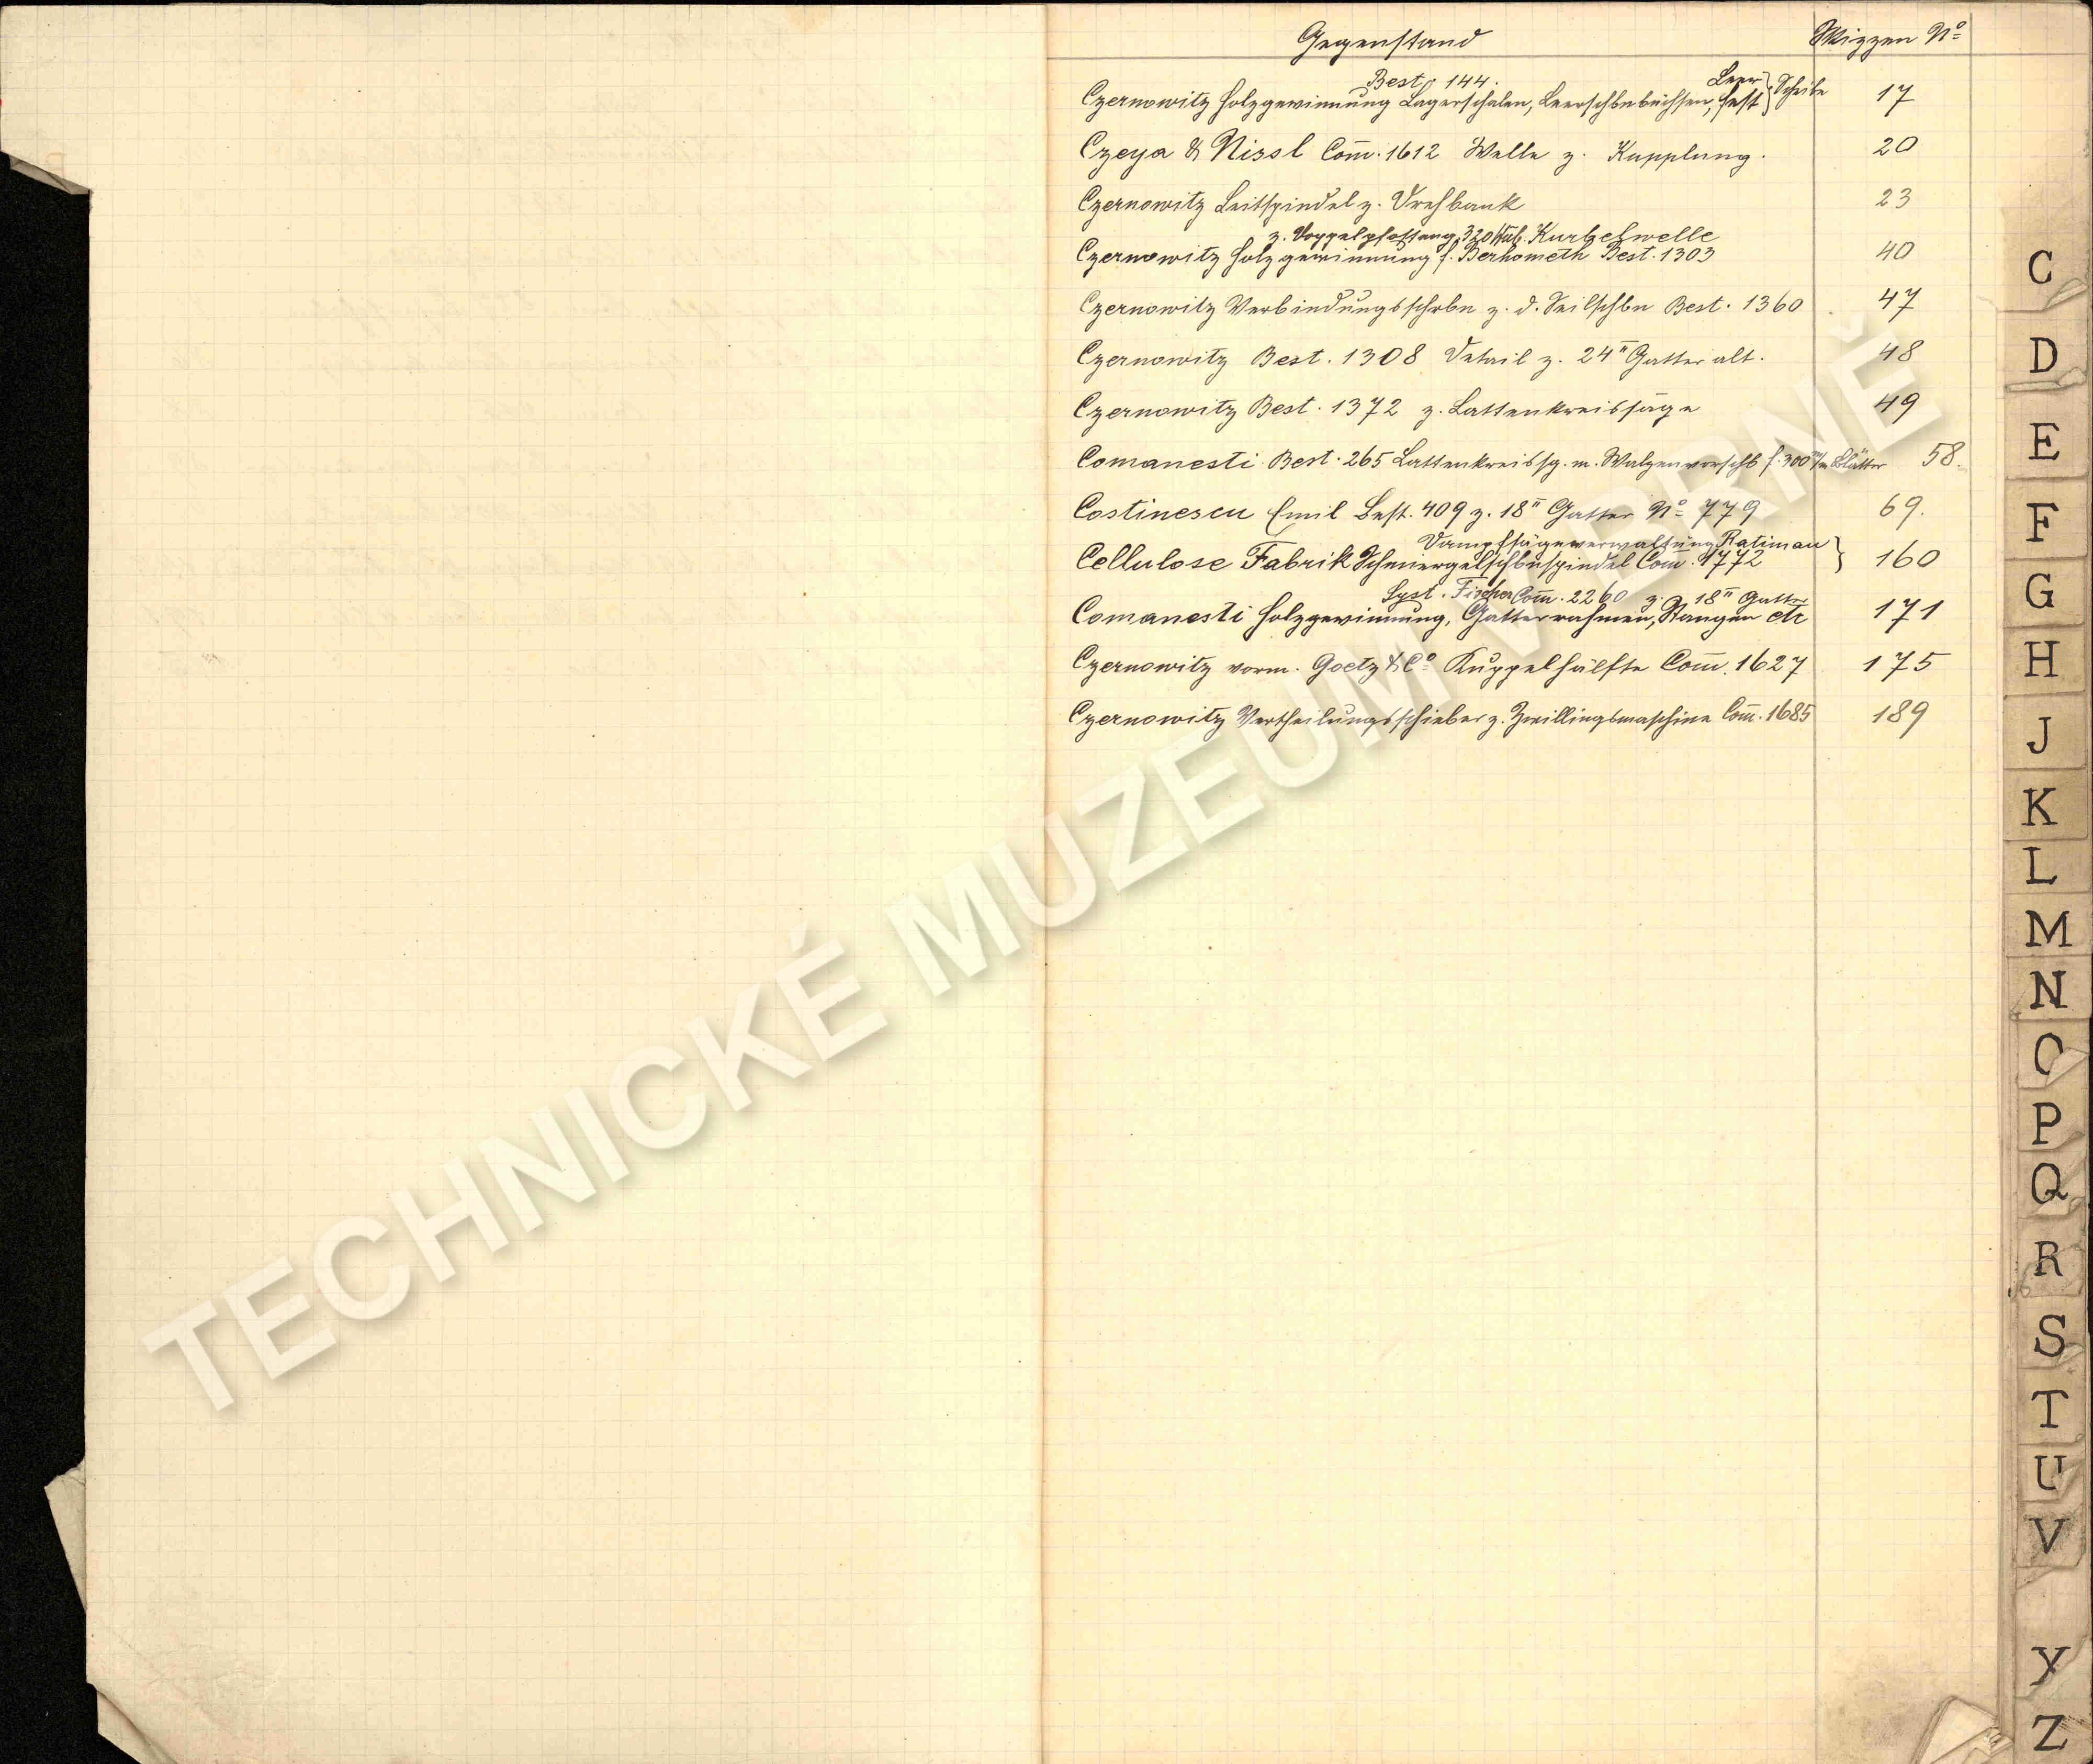 Gegenstand Skizzen Nº
Best. 144. Leer
Czernowitz Holzgewinnung Lagerschalen, Leerschbnbüchsen, fest } Scheibe 17
Czeya & Nissl Com̅. 1612 Welle z. Kupplung. 20
Czernowitz Leitspindel z. Drehbank 23
320 Hub. Kurbelwelle
Czernowitz Holzgewinnung f. Berhometh Best. 1303 40
Czernowitz Verbindungsschrbn z. d. Seilschbn Best. 1360 47
Czernowitz Best. 1308 Detail z. 24" Gatter alt. 48
Czernowitz Best. 1372 z. Lattenkreissäge 49
Comanesti Best. 265 Lattenkreissg. m. Walzenvorschb f. 300 m/m Blätter 58.
Costinescu Emil Best. 409 z. 18" Gatter Nº 779 69.
Dampfsägeverwaltung Ratimau
Cellulose Fabrik Schmiergelschbnspindel Com̅. 1772 } 160
Syst. Fischer Com̅. 2260 z. 18" Gatter
Comanesti Holzgewinnung, Gatterrahmen, Stangen etc 171
Czernowitz vorm. Goetz & Cº Kuppelhälfte Com̅. 1627 175
Czernowitz Vertheilungsschieber z. Zwillingsmaschine Com̅. 1685 189
C
D
E
F
G
H
J
K
L
M
N
O
P
Q
R
S
T
U
V
Y
Z
TECHNICKÉ MUZEUM V BRNĚ